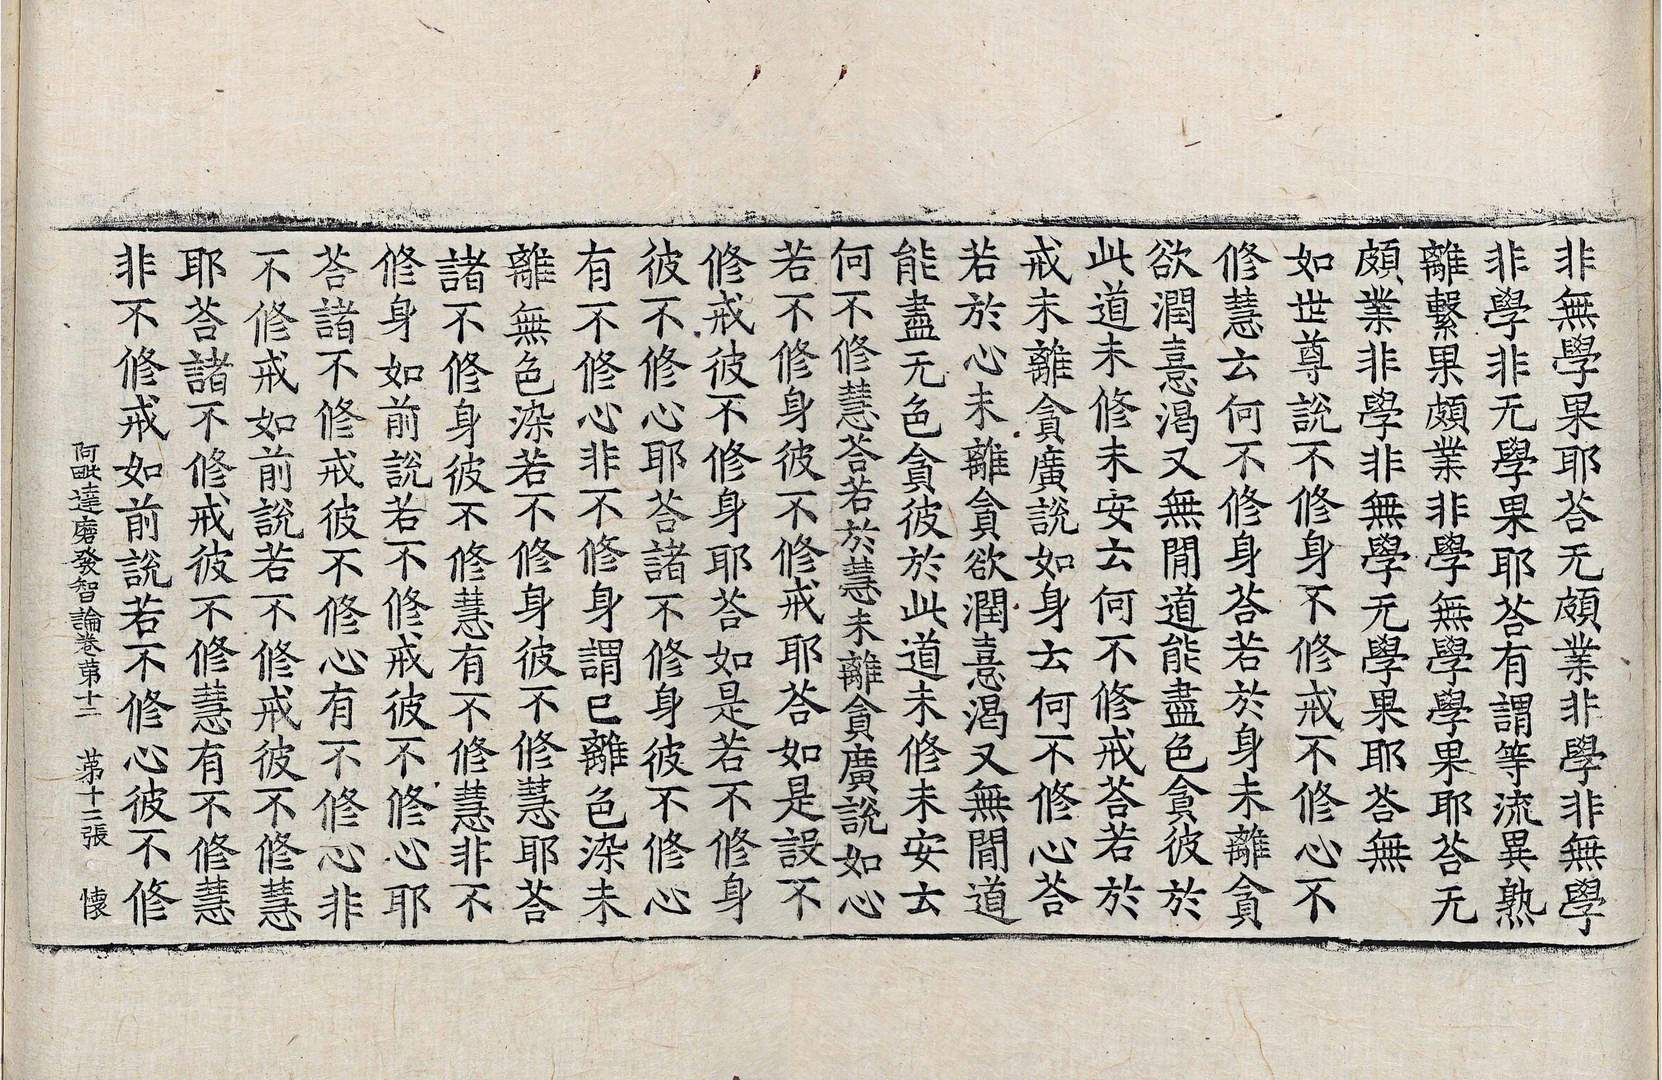 非無學果耶荅无頗業非學非無學
非學非无學果耶荅有謂等流異熟
離繫果頗業非學非無學學果耶荅无
頗業非學非無學无學果耶荅無
如世尊說不修身不修戒不修心不
修慧云何不修身荅若於身未離貪
欲潤憙渴又無閒道能盡色貪彼於
此道未修未安云何不修戒荅若於
戒未離貪廣說如身云何不修心荅
若於心未離貪欲潤憙渴又無閒道
能盡无色貪彼於此道未修未安云
何不修慧荅若於慧未離貪廣說如心
若不修身彼不修戒耶荅如是設不
修戒彼不修身耶荅如是若不修身
彼不修心耶荅諸不修身彼不修心
有不修心非不修身謂已離色染未
離無色染若不修身彼不修慧耶荅
諸不修身彼不修慧有不修慧非不
修身如前說若不修戒彼不修心耶
荅諸不修戒彼不修心有不修心非
不修戒如前說若不修戒彼不修慧
耶荅諸不修戒彼不修慧有不修慧
非不修戒如前說若不修心彼不修
阿毗達磨發智論卷苐十二 苐十三張 懷